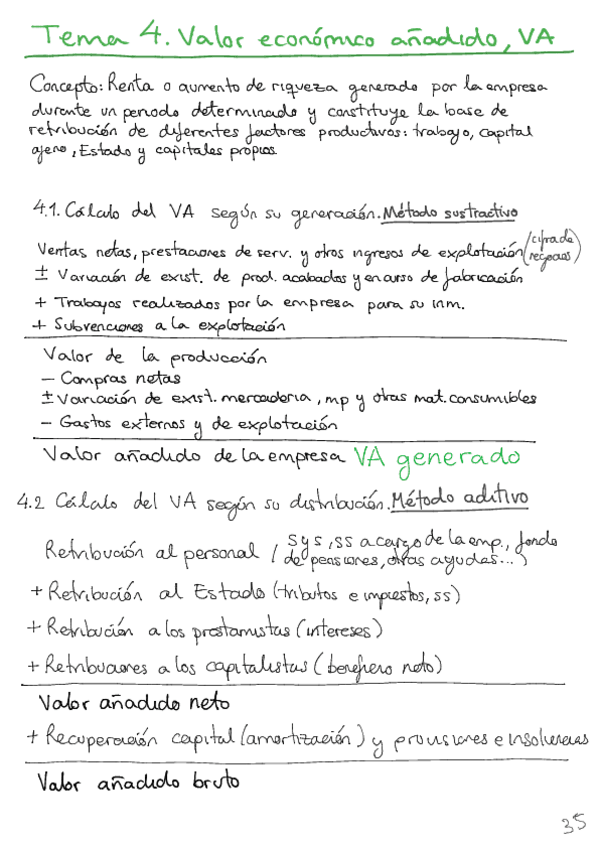 Tema 4. Valor económico añadido, VA
Concepto: Renta o aumento de riqueza generado por la empresa
durante un periodo determinado y constituye la base de
retribución de diferentes factores productivos: trabajo, capital
ajeno, Estado y capitales propios
4.1. Cálculo del VA según su generación. Método sustractivo
Ventas netas, prestaciones de serv. y otros ingresos de explotación (cifra de
negocios)
± Variación de exist. de prod. acabados y en curso de fabricación
+ Trabajos realizados por la empresa para su inm.
+ Subvenciones a la explotación
Valor de la producción
- Compras netas
± Variación de exist. mercadería, mp y otras mat. consumibles
- Gastos externos y de explotación
Valor añadido de la empresa VA generado
4.2 Cálculo del VA según su distribución. Método aditivo
Retribución al personal ( sys, ss a cargo de la emp., fondo
de pensiones, otras ayudas...)
+ Retribución al Estado (tributos e impuestos, ss)
+ Retribución a los prestamistas (intereses)
+ Retribuciones a los capitalistas (beneficio neto)
Valor añadido neto
+ Recuperación capital (amortización) y provisiones e insolvencias
Valor añadido bruto
35